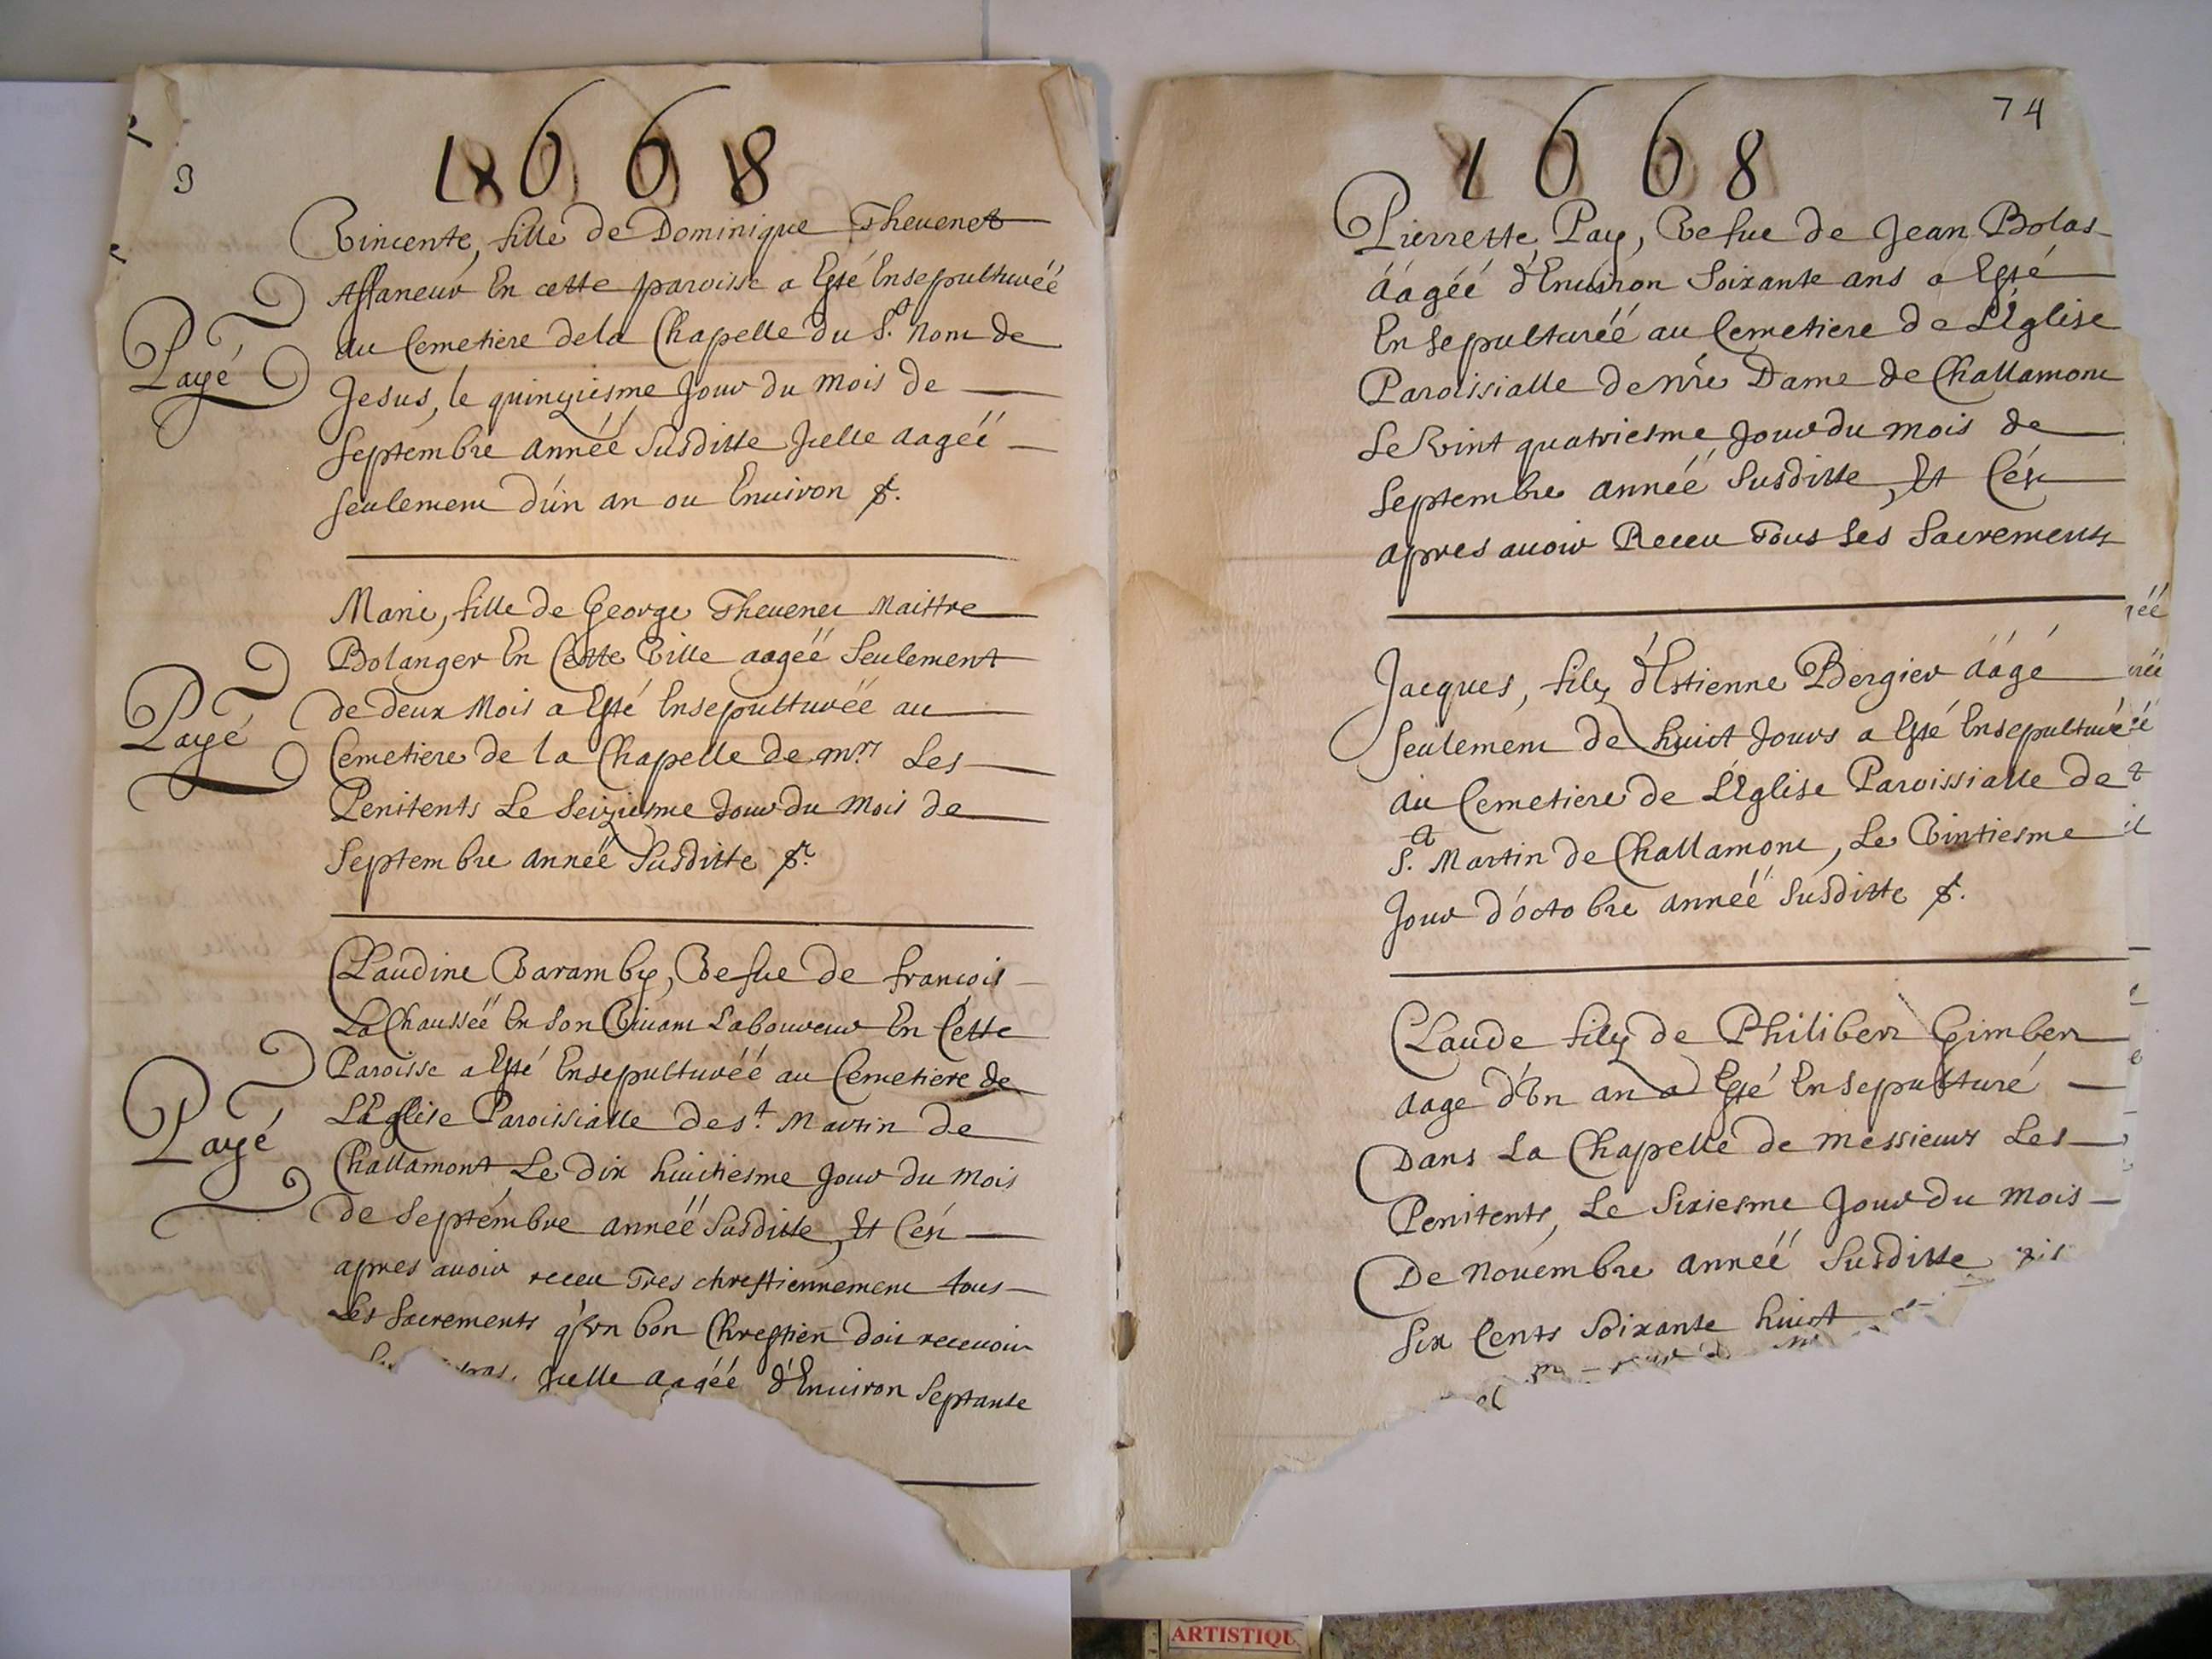 3
1668
Vincente, fille de Dominique Thevenet
Affaneur En cette paroisse a Esté Ensepulturéé
au Cemetiere dela Chapelle du St. nom de
Payé
Jesus, le quinziesme Jour du mois de
Septembre annéé Susditte Jcelle aagéé
seulement d'ún an ou Enuiron &.
Marie, fille de George Thevenet Maittre
Bolanger En Cette Ville aagéé Seulement
de deux Mois a Esté Ensepulturéé au
Payé
Cemetiere de la Chapelle de Mrs Les
Penitents Le Seiziesme Jour du Mois de
Septembre annéé Susditte &.
Claudine Baramby, Vefue de francois
La Chausséé En son Viuant Laboureur En Cette
Paroisse a Esté Ensepulturéé au Cemetiere de
Payé
L'Eglise Paroissialle de St. Martin de
Challamont Le dix huictiesme Jour du Mois
de Septembre annéé Susditte, Et C'est
apres auoir receu Tres chrestiennement tous
Les Sacrements q'Vn bon Chrestien doit receuoir
Jcelle aagéé d'Enuiron Septante
74
1668
Pierrette Pay, Vefue de Jean Bolas
ââgéé d'Enuiron Soixante ans a Esté
Ensepulturéé au Cemetiere de L'Eglise
Paroissialle de nre Dame de Challamont
Le Vint quatriesme Jour du mois de
Septembre annéé Susditte, Et C'est
apres auoir Receu Tous Les Sacrements
Jacques, filz d'Estienne Bergier ââgé
Seulement de huict Jours a Esté Ensepulturé
au Cemetiere de L'Eglise Paroissialle de
St. Martin de Challamont, Le Vintiesme
Jour d'octobre annéé Susditte &.
Claude filz de Philibert Gimbert
aagé d'Vn an a Esté Ensepulturé
Dans La Chapelle de Messieurs Les
Penitents, Le Sixiesme Jour du Mois
De Nouembre annéé Susditte
Six Cents Soixante huict
ARTISTIQU